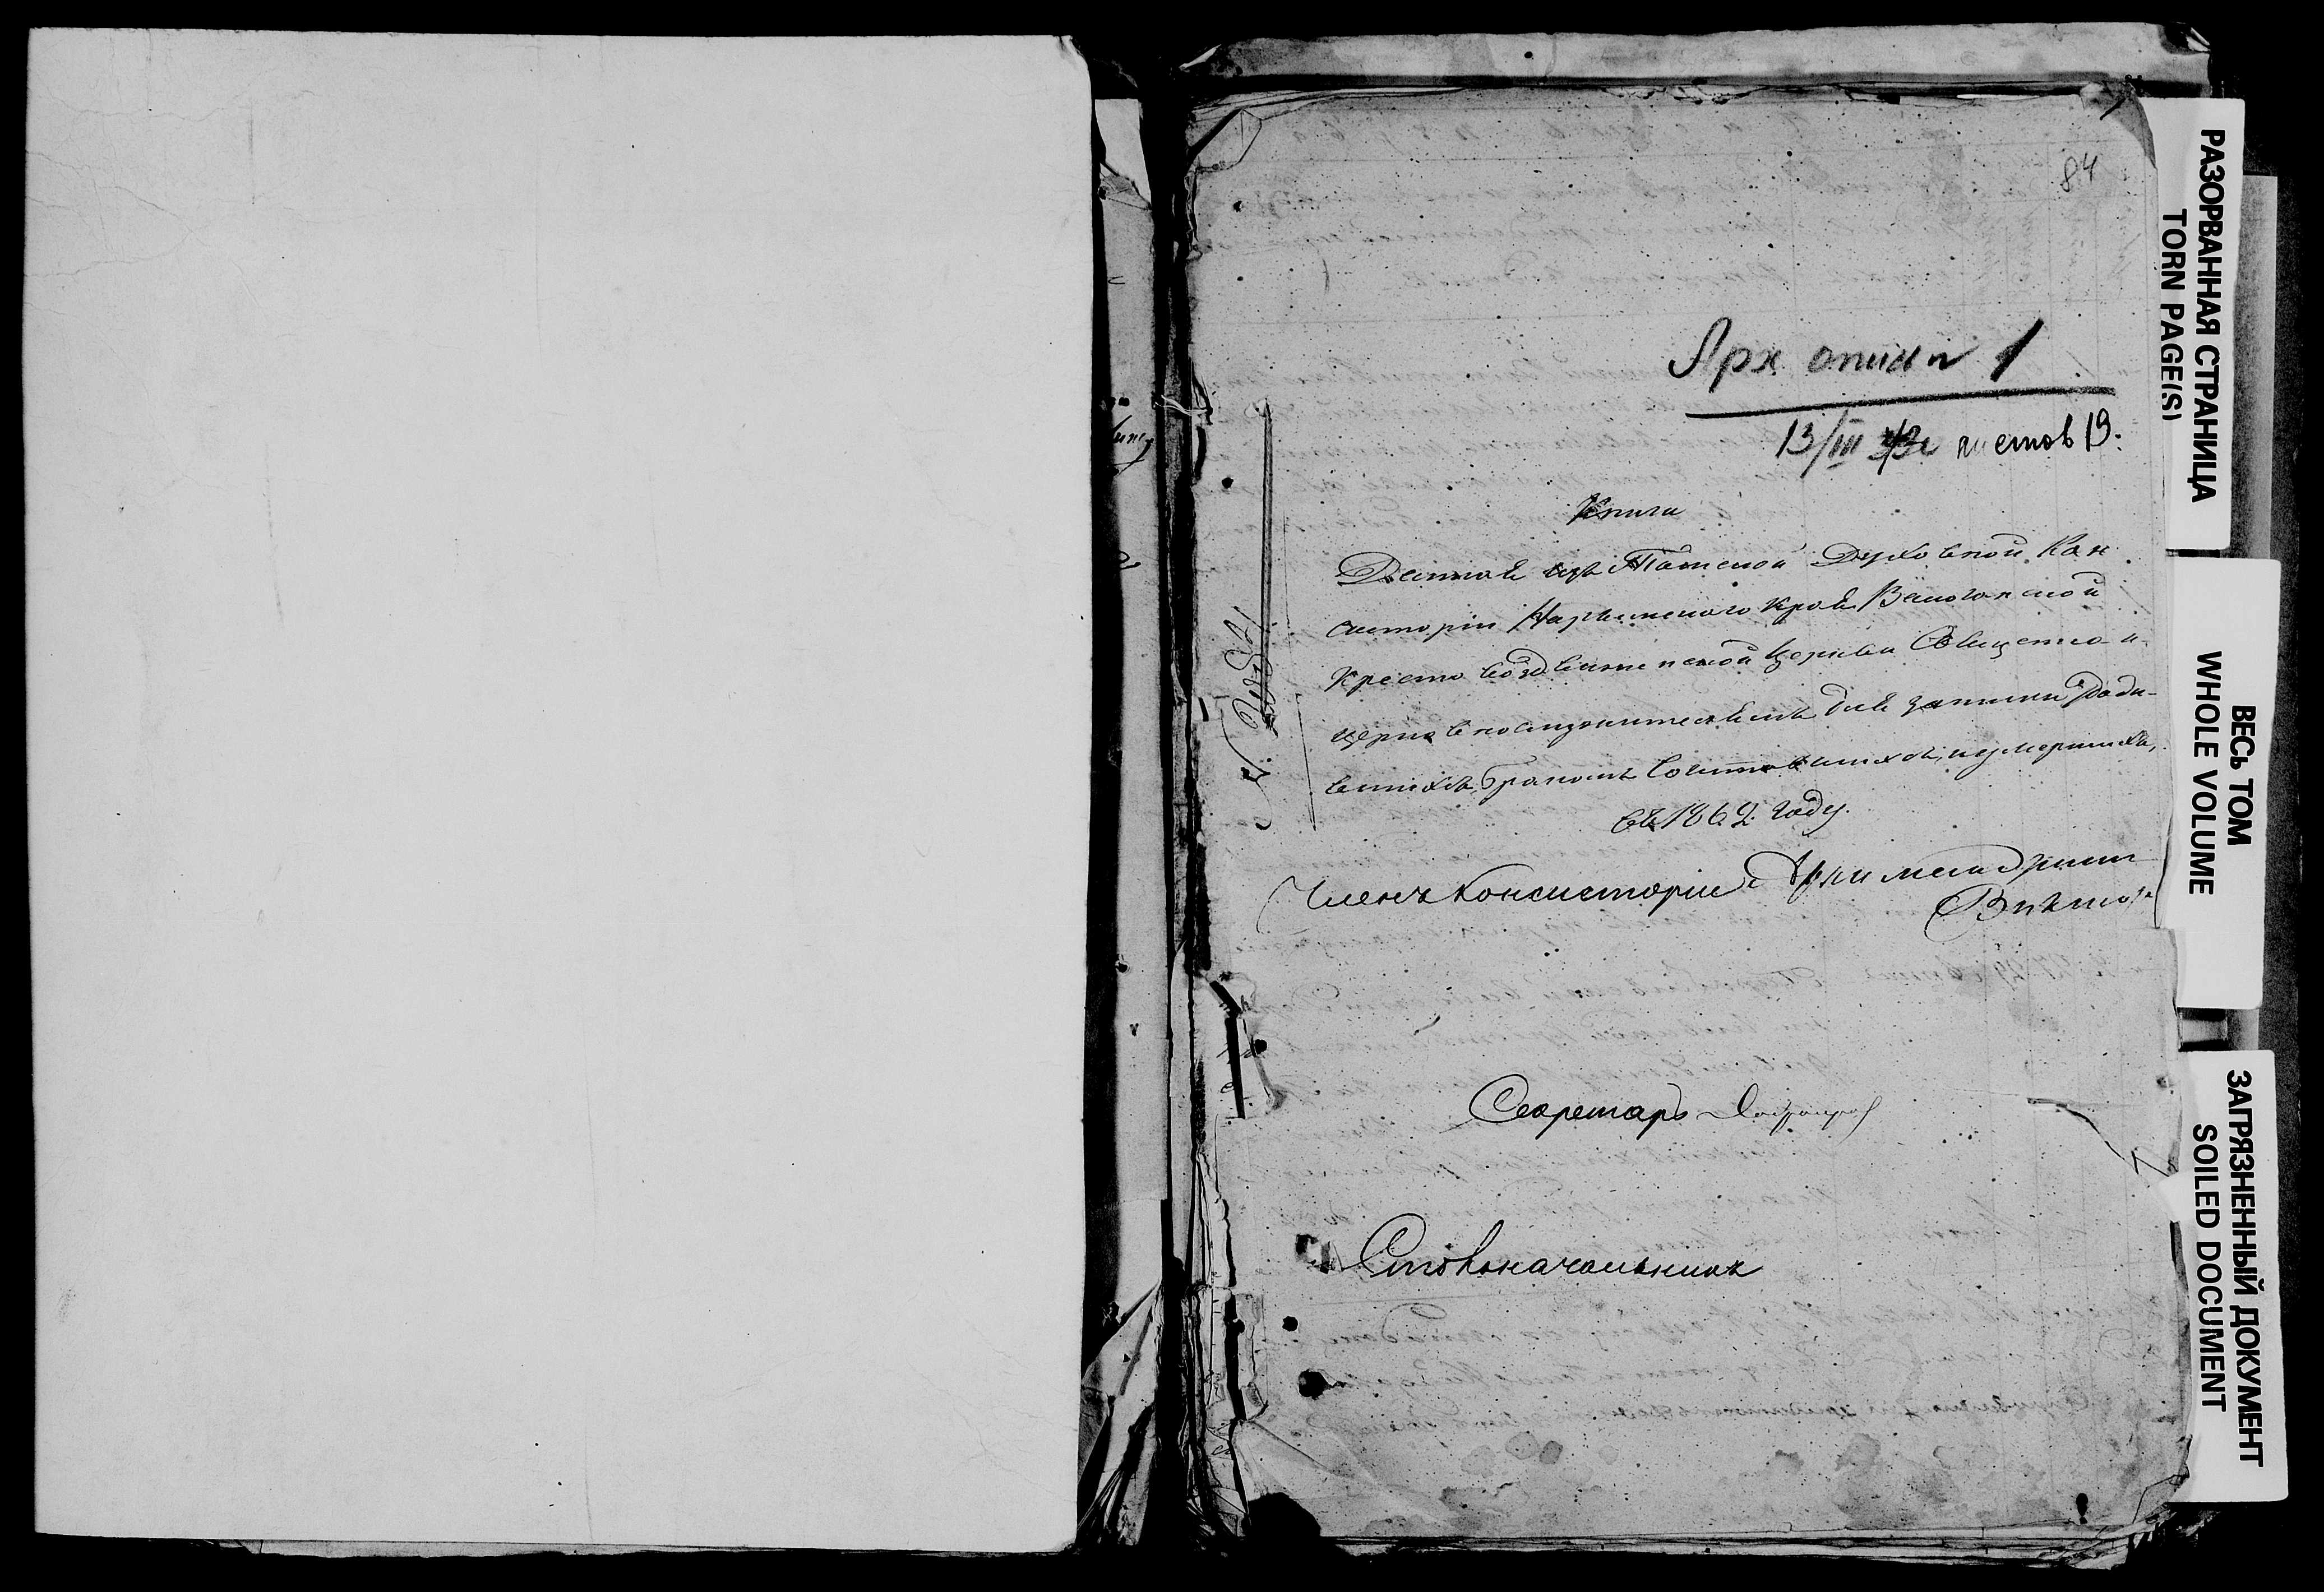 84
Арх опис n 1
13/III листов 19.
Книга
Данная изъ Томской Духовной Кон
систоріи Нарымскаго края Васюганской
Крестовоздвиженской Церкви Священно-и-
церковнослужителямъ для записки роди-
вшихся, бракомъ сочитавшихся, и умершихъ,
въ 1862 году.
Членъ Консисторіи Архимандритъ
Секретарь
Столоначальникъ
РАЗОРВАННАЯ СТРАНИЦА
TORN PAGE(S)
ВЕСЬ ТОМ
WHOLE VOLUME
ЗАГРЯЗНЕННЫЙ ДОКУМЕНТ
SOILED DOCUMENT